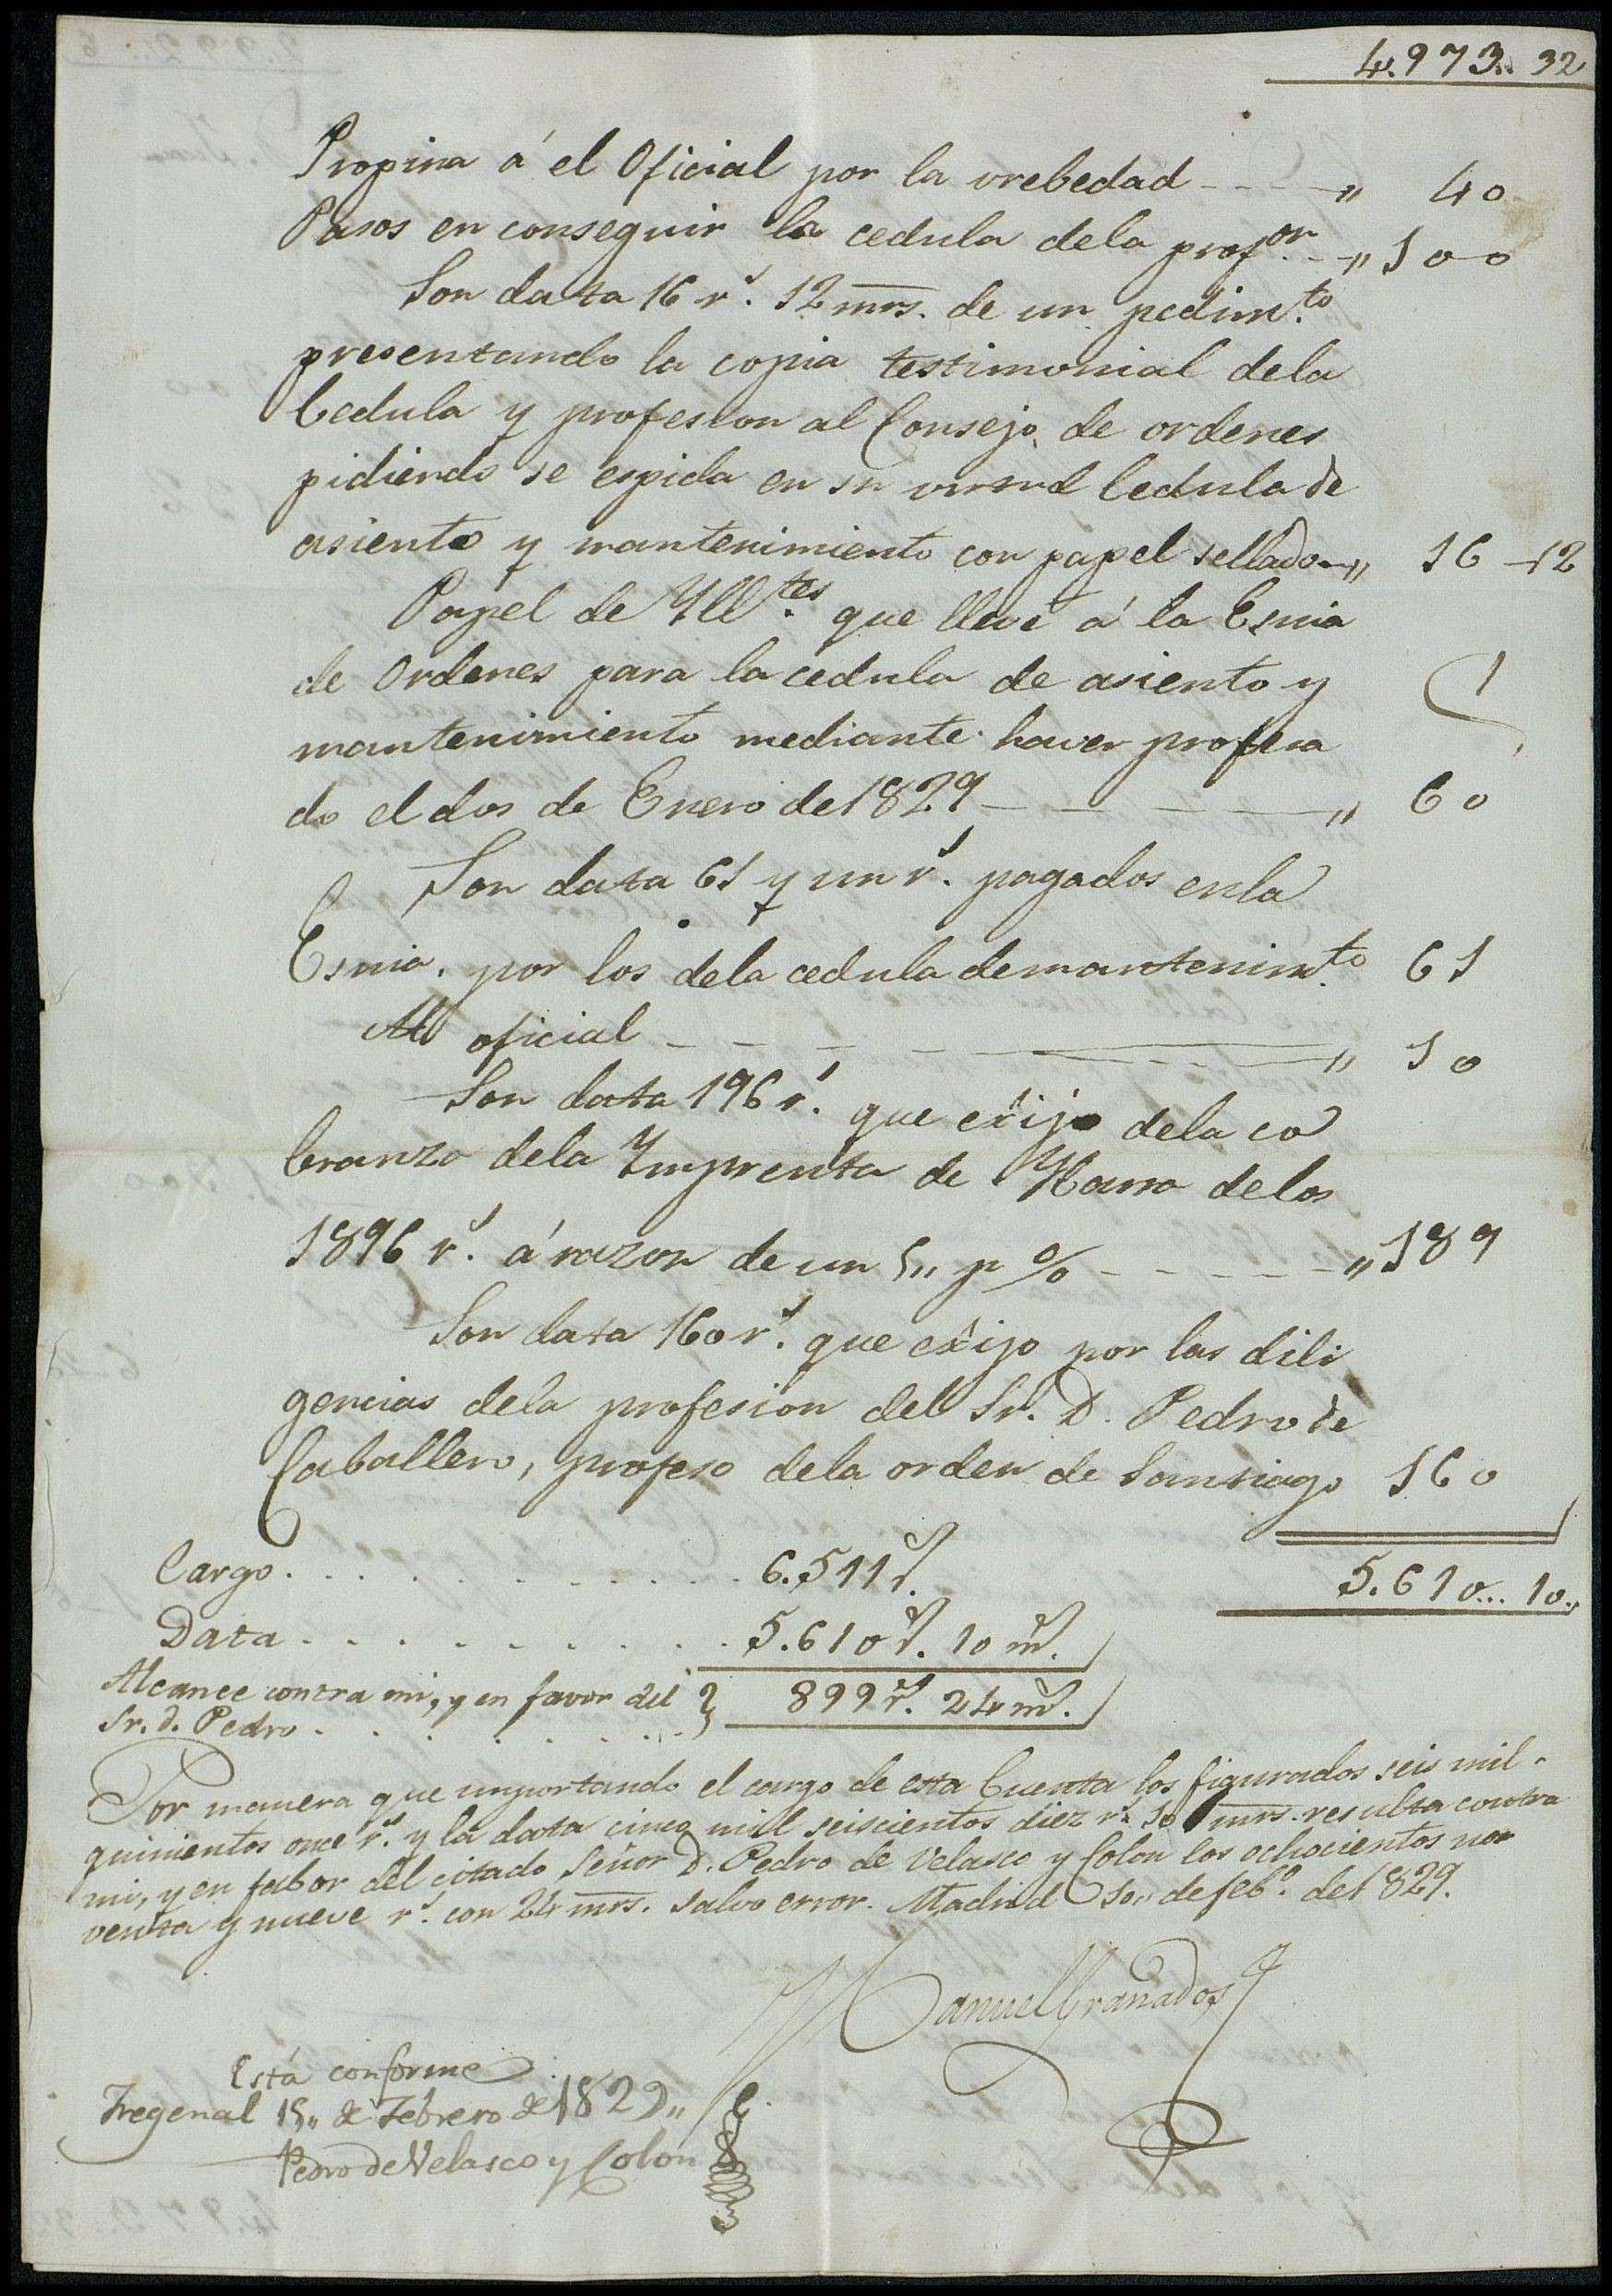 4.973.. 32
Propina á el Oficial por la vrebedad - - - - " 40
Pasos en conseguir la cedula dela prof.on - - " 100
Son data 16 r.s 12 mrs. de un pedim.to
presentando la copia testimonial dela
Cedula y profesion al Consejo de ordenes
pidiendo se espida en su virtud Cedula de
asiento y mantenimiento con papel sellado - " 16 - 12
Papel de Yll.tes que llevé á la Esnia
de Ordenes para la cedula de asiento y
mantenimiento mediante haver profesa
do el dos de Enero de 1829 - - - - " 60
Son data 61 y un r.s pagados en la
Esnia. por los dela cedula de mantenim.to 61
Al oficial - - - - " 10
Son data 196 r.s que exijo dela co
branza dela Ymprenta de
delos
1896 r.s á razon de un p % - - - - - " 189
Son data 160 r.s que exijo por las dili
gencias dela profesion del Sr. D. Pedro de
Caballero, profeso dela orden de Santiago 160
5.610... 10..
Cargo. . . . . . . . . . . . 6.511 r.s
Data . . . . . . . . . . 5.610 r.s 10 m.s
Alcance contra mi, y en favor del } 899 r.s 24 m.s
Sr. d. Pedro . . . . . . . .
Por manera que importando el cargo de esta Cuenta los figurados seis mil
quinientos once r.s y la data cinco mil seiscientos diez r.s 10 mrs. resulta contra
mi, y en fabor del citado Señor D. Pedro de Velasco y Colon los ochocientos no
venta y nueve r.s con 24 mrs. salvo error. Madrid 10,, de feb.o de 1829.
Manuel Granados
Está conforme
Fregenal 15,, de Febrero de 1829,,
Pedro de Velasco y Colon